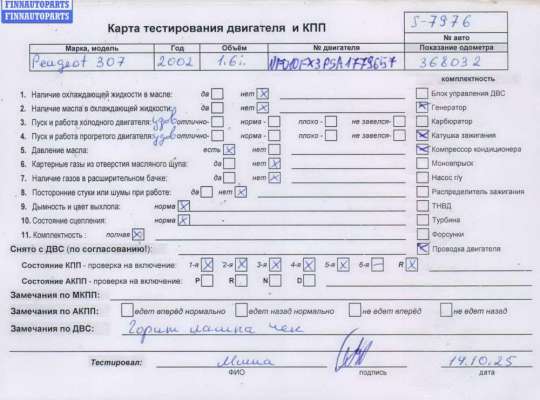 FINNAUTOPARTS
FINNAUTOPARTS
FINNAUTOPARTS
Карта тестирования двигателя и КПП
S-7976
№ авто
Марка, модель Год Объём № двигателя Показание одометра
Peugeot 307 2002 1.6i 368032
комплектность
1. Наличие охлаждающей жидкости в масле: да нет Блок управления ДВС
2. Наличие масла в охлаждающей жидкости: да нет Генератор
3. Пуск и работа холодного двигателя: удов отлично- норма - плохо - не завелся- Карбюратор
4. Пуск и работа прогретого двигателя: удов отлично- норма - плохо - не завелся- Катушка зажигания
5. Давление масла: есть нет Компрессор кондиционера
6. Картерные газы из отверстия масляного щупа: да нет Моновпрыск
7. Наличие газов в расширительном бачке: да нет Насос г/у
8. Посторонние стуки или шумы при работе: да нет Распределитель зажигания
9. Дымность и цвет выхлопа: норма ТНВД
10. Состояние сцепления: норма Турбина
11. Комплектность : полная Форсунки
Снято с ДВС (по согласованию!): Проводка двигателя
Состояние КПП - проверка на включение: 1-я 2-я 3-я 4-я 5-я 6-я R
Состояние АКПП - проверка на включение: P R N D
Замечания по МКПП:
Замечания по АКПП: едет вперёд нормально едет назад нормально не едет вперёд не едет назад
Замечания по ДВС: Горит лампа чек
Тестировал: Миша 14.10.25
ФИО подпись дата